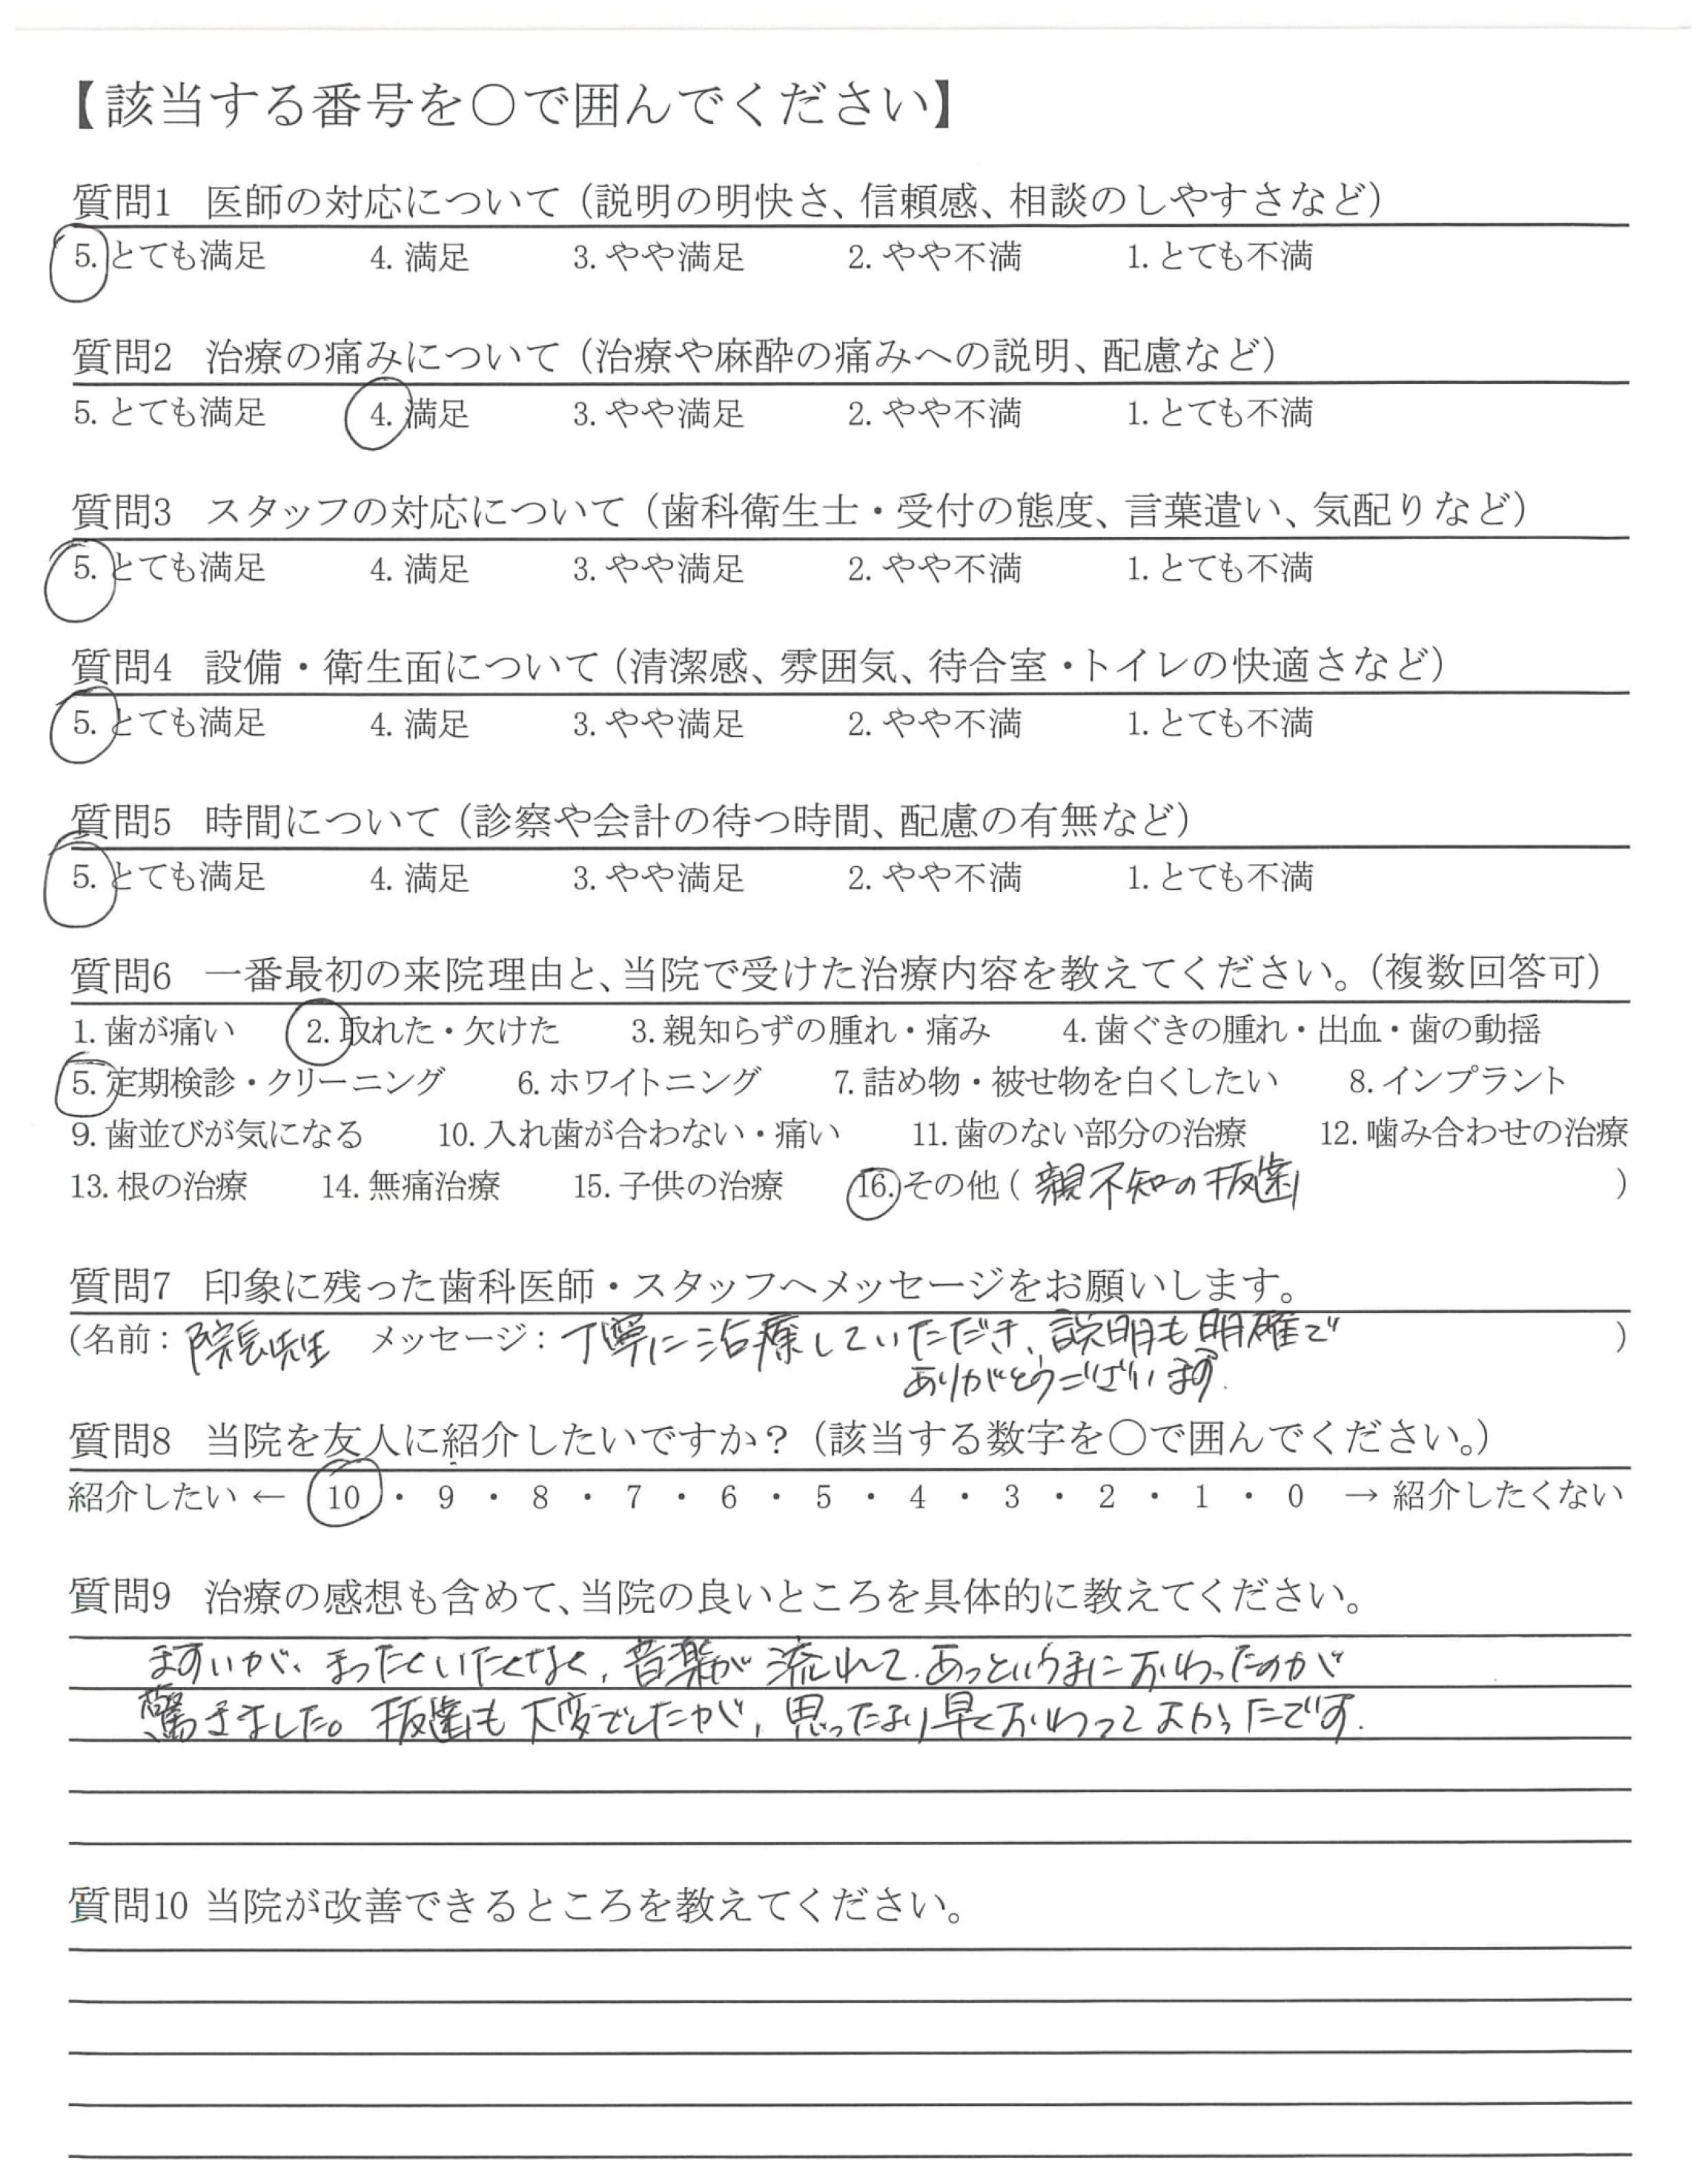 【該当する番号を〇で囲んでください】
質問1 医師の対応について（説明の明快さ、信頼感、相談のしやすさなど）
5. とても満足 4. 満足 3. やや満足 2. やや不満 1. とても不満
質問2 治療の痛みについて（治療や麻酔の痛みへの説明、配慮など）
5. とても満足 4. 満足 3. やや満足 2. やや不満 1. とても不満
質問3 スタッフの対応について（歯科衛生士・受付の態度、言葉遣い、気配りなど）
5. とても満足 4. 満足 3. やや満足 2. やや不満 1. とても不満
質問4 設備・衛生面について（清潔感、雰囲気、待合室・トイレの快適さなど）
5. とても満足 4. 満足 3. やや満足 2. やや不満 1. とても不満
質問5 時間について（診察や会計の待つ時間、配慮の有無など）
5. とても満足 4. 満足 3. やや満足 2. やや不満 1. とても不満
質問6 一番最初の来院理由と、当院で受けた治療内容を教えてください。（複数回答可）
1. 歯が痛い 2. 取れた・欠けた 3. 親知らずの腫れ・痛み 4. 歯ぐきの腫れ・出血・歯の動揺
5. 定期検診・クリーニング 6. ホワイトニング 7. 詰め物・被せ物を白くしたい 8. インプラント
9. 歯並びが気になる 10. 入れ歯が合わない・痛い 11. 歯のない部分の治療 12. 噛み合わせの治療
13. 根の治療 14. 無痛治療 15. 子供の治療 16. その他（親不知の抜歯）
質問7 印象に残った歯科医師・スタッフへメッセージをお願いします。
（名前：院長先生 メッセージ：丁寧に治療していただき、説明も明確で）
ありがとうございます.
質問8 当院を友人に紹介したいですか？（該当する数字を〇で囲んでください。）
紹介したい ← 10 ・ 9 ・ 8 ・ 7 ・ 6 ・ 5 ・ 4 ・ 3 ・ 2 ・ 1 ・ 0 → 紹介したくない
質問9 治療の感想も含めて、当院の良いところを具体的に教えてください。
ますいが、まったくいたくなく、音楽が流れて、あっというまにおわったのが
驚きました。抜歯も大変でしたが、思ったより早くおわってよかったです.
質問10 当院が改善できるところを教えてください。